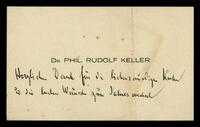 DR PHIL. RUDOLF KELLER
Herzlichen Dank für die liebenswürdige Karte
& die besten Wünsche zum Jahreswechsel